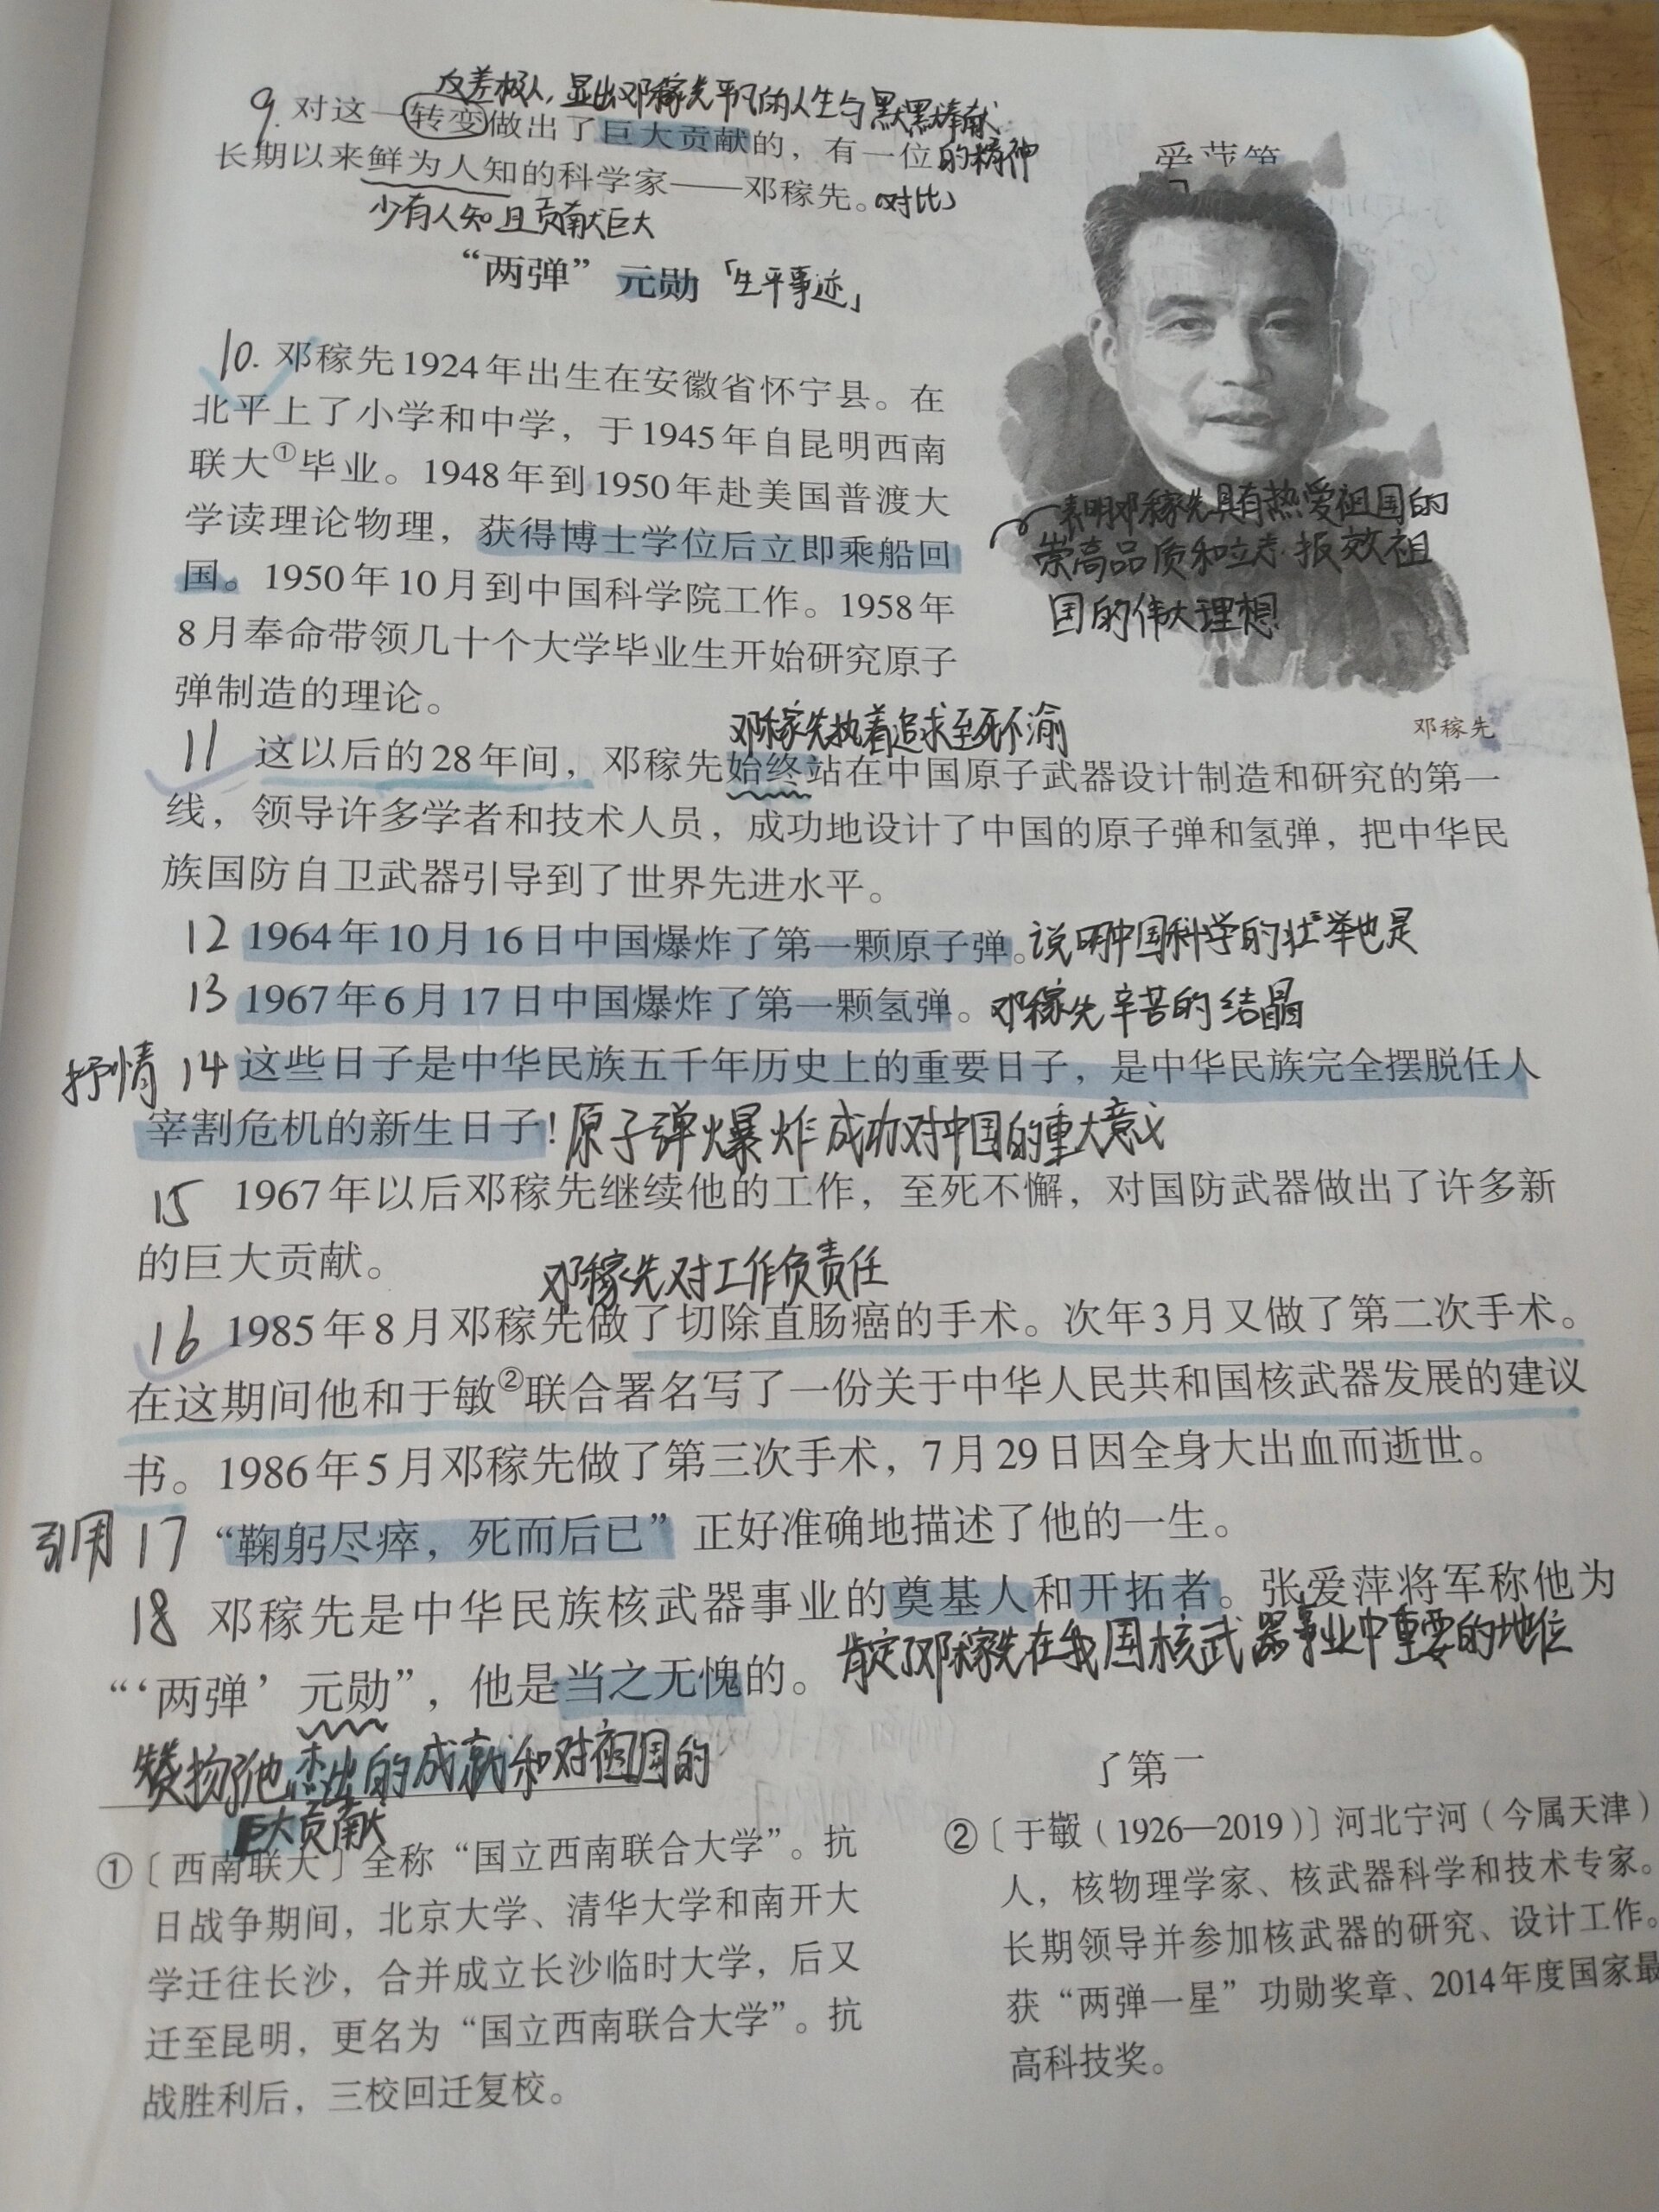 反差极大,显出邓稼先平凡的人生与默默奉献
9. 对这一转变做出了巨大贡献的，有一位的精神
长期以来鲜为人知的科学家——邓稼先。(对比)
少有人知且贡献巨大
“两弹”元勋「生平事迹」
10. 邓稼先1924年出生在安徽省怀宁县。在
北平上了小学和中学，于1945年自昆明西南
联大①毕业。1948年到1950年赴美国普渡大
学读理论物理，获得博士学位后立即乘船回
国。1950年10月到中国科学院工作。1958年
8月奉命带领几十个大学毕业生开始研究原子
弹制造的理论。
表明邓稼先具有热爱祖国的
崇高品质和立志报效祖
国的伟大理想
邓稼先
邓稼先执着追求至死不渝
11 这以后的28年间，邓稼先始终站在中国原子武器设计制造和研究的第一
线，领导许多学者和技术人员，成功地设计了中国的原子弹和氢弹，把中华民
族国防自卫武器引导到了世界先进水平。
12 1964年10月16日中国爆炸了第一颗原子弹。说明中国科学的壮举也是
13 1967年6月17日中国爆炸了第一颗氢弹。邓稼先辛苦的结晶
抒情 14 这些日子是中华民族五千年历史上的重要日子，是中华民族完全摆脱任人
宰割危机的新生日子！原子弹爆炸成功对中国的重大意义
15 1967年以后邓稼先继续他的工作，至死不懈，对国防武器做出了许多新
的巨大贡献。
邓稼先对工作负责任
16 1985年8月邓稼先做了切除直肠癌的手术。次年3月又做了第二次手术。
在这期间他和于敏②联合署名写了一份关于中华人民共和国核武器发展的建议
书。1986年5月邓稼先做了第三次手术，7月29日因全身大出血而逝世。
引用 17 “鞠躬尽瘁，死而后已”正好准确地描述了他的一生。
18 邓稼先是中华民族核武器事业的奠基人和开拓者。张爱萍将军称他为
“‘两弹’元勋”，他是当之无愧的。肯定了邓稼先在我国核武器事业中重要的地位
赞扬了他杰出的成就和对祖国的
巨大贡献
①〔西南联大〕全称“国立西南联合大学”。抗
日战争期间，北京大学、清华大学和南开大
学迁往长沙，合并成立长沙临时大学，后又
迁至昆明，更名为“国立西南联合大学”。抗
战胜利后，三校回迁复校。
了第二
②〔于敏（1926—2019）〕河北宁河（今属天津）
人，核物理学家、核武器科学和技术专家。
长期领导并参加核武器的研究、设计工作。
获“两弹一星”功勋奖章、2014年度国家最
高科技奖。